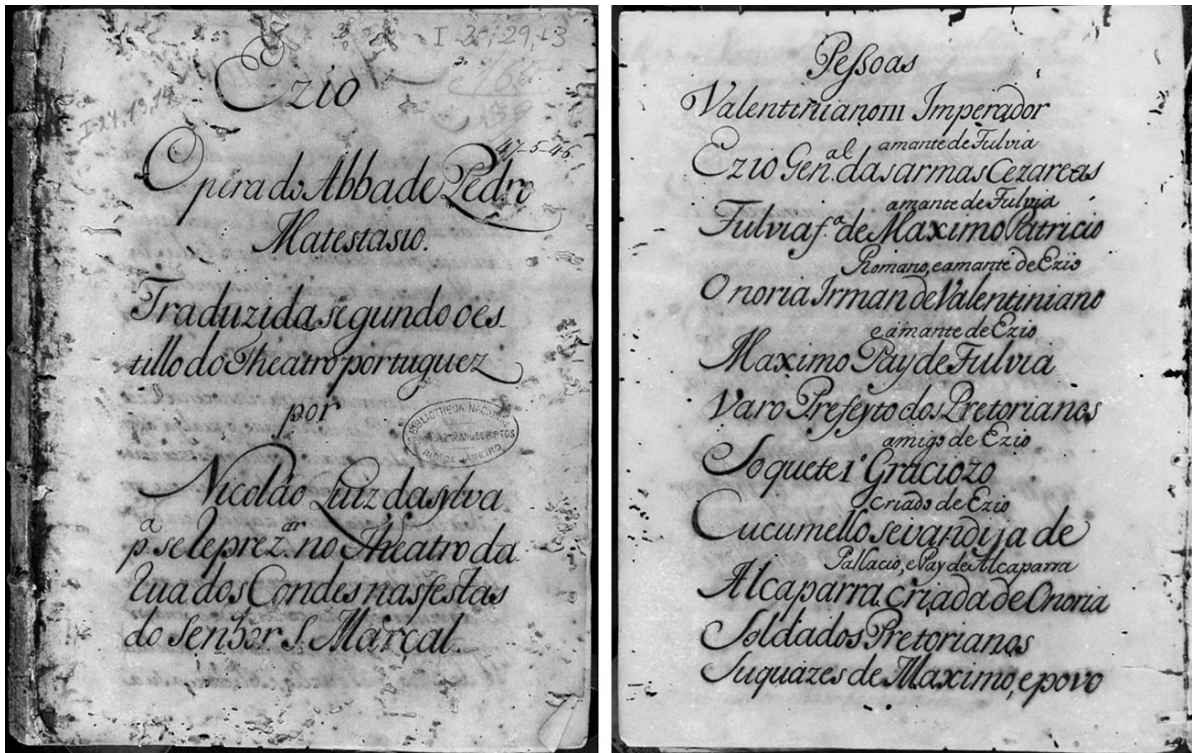 I-25,29,13
Ezio
I-24,13,14
47-5-46
Opera do Abbade Pedro
Matestasio.
Traduzida segundo o es-
tillo do Theatro portuguez
por
BIBLIOTHECA NACIONAL
RIO DE JANEIRO
Nicoláo Luiz da sylva
p.ª se reprez.ar no Theatro da
Rua dos Condes nas festas
do Senhor S. Marçal.
Pessoas
Valentiniano III Imperador
amante de Fulvia
Ezio Gen.al das armas Cezareas
amante de Fulvia
Fulvia f.ª de Maximo Patricio
Romano, e amante de Ezio
Onoria Irman de Valentiniano
e amante de Ezio
Maximo Pay de Fulvia
Varo Prefeyto dos Pretorianos
amigo de Ezio
Soquete 1º Graciozo
criado de Ezio
Cucumello sevandija de
Pallacio, e Pay de Alcaparra
Alcaparra criada de Onoria
Soldados Pretorianos
Suquazes de Maximo, e povo